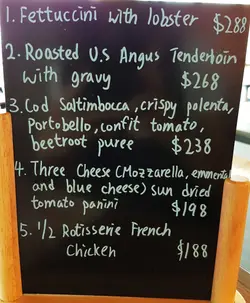 1. Fettuccini with lobster $288
2. Roasted U.S Angus Tenderloin
with gravy $268
3. Cod Saltimbocca, crispy polenta,
Portobello, confit tomato,
beetroot puree $238
4. Three Cheese (Mozzarella, emmental
and blue cheese) sun dried
tomato panini $198
5. 1/2 Rotisserie French
Chicken $188